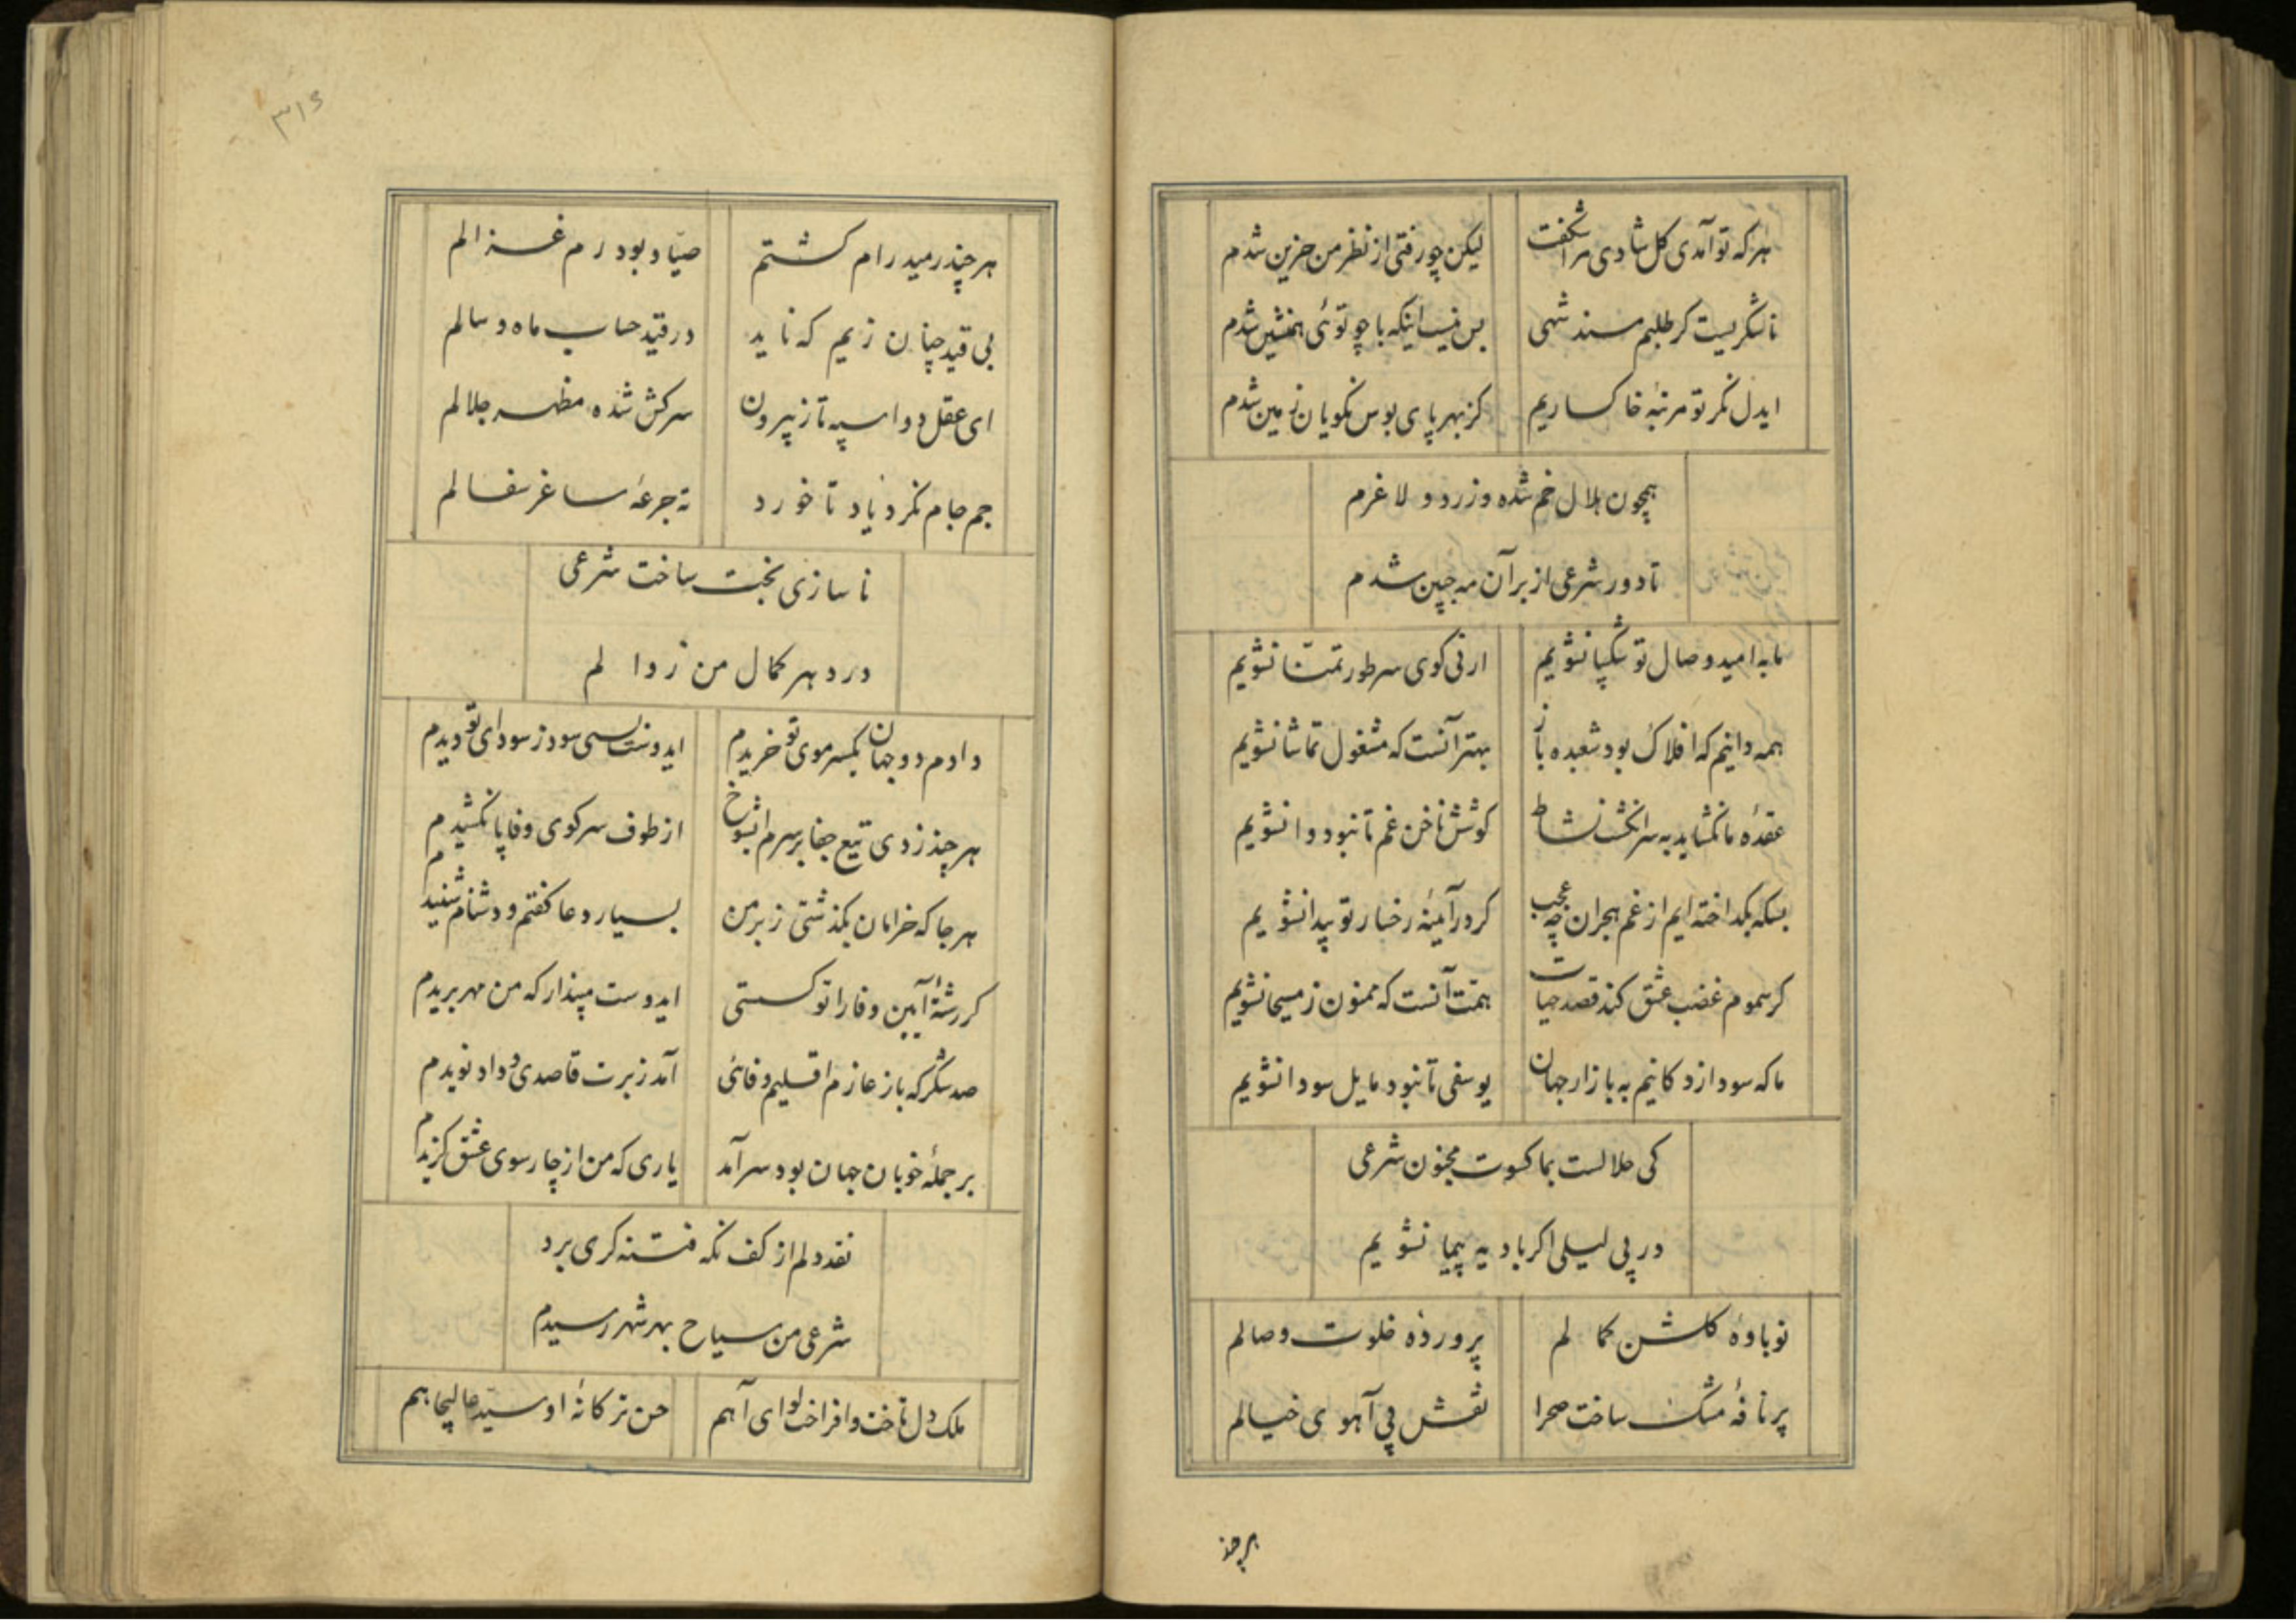 هرکه تو آمدی کل شادی مرا شکفت
لیکن چو رفتی از نظر من حزین شدم
ناشکریست کر طلبم مسند شهی
بس نیست اینکه با چو توئی همنشین شدم
ایدل نکر تو مرتبهٔ خاکساریم
کز بهر پای بوس نکویان زمین شدم
همچون هلال خم شده و زرد و لاغرم
تا دور شرعی از بر آن مه جبین شدم
ما به امید وصال تو شکیبا نشویم
ارنی کوی سر طور تمنّا نشویم
همه دانیم که افلاک بود شعبده باز
بهتر آنست که مشغول تماشا نشویم
عقدهٔ ما نکشاید به سر انکشت نشاط
کوشش ناخن غم تا نبود وا نشویم
بسکه بکداخته ایم از غم هجران چه عجب
کر در آیینهٔ رخسار تو پیدا نشویم
کر سموم غضب عشق کند قصد حیات
همّت آنست که ممنون ز مسیحا نشویم
ما که سودازدکانیم به بازار جهان
یوسفی تا نبود مایل سودا نشویم
کی حلالست بما کسوت مجنون شرعی
در پی لیلی اکر بادیه پیما نشویم
نوباوهٔ کلشن کمالم
پروردهٔ خلوت وصالم
پر نافهٔ مشک ساخت صحرا
نقش پی آهوی خیالم
هرچند
۳۱۶
هرچند رمید رام کشتم
صیّاد بود رم غزالم
بی قید چنان زیم که ناید
در قید حساب ماه و سالم
ای عقل دو اسپه تاز بیرون
سرکش شده مظهر جلالم
جم جام نکرد یاد تا خورد
ته جرعهٔ ساغر سفالم
ناسازی بخت ساخت شرعی
در دهر کمال من زوالم
دادم دو جهان یکسر موی تو خریدم
ایدوست بسی سود ز سودای تو دیدم
هرچند زدی تیغ جفا بر سرم ایشوخ
از طوف سر کوی وفا پا نکشیدم
هرجا که خرامان بکذشتی ز بر من
بسیار دعا کفتم و دشنام شنیدم
کر رشتهٔ آیین وفا را تو کسستی
ایدوست مپندار که من مهر بریدم
صد شکر که باز عازم اقلیم وفائی
آمد ز برت قاصدی و داد نویدم
بر جملهٔ خوبان جهان بود سرآمد
یاری که من از چارسوی عشق کزیدم
نقد دلم از کف نکه فتنه کری برد
شرعی من سیاح بهر شهر رسیدم
ملک دل تاخت و افراخت لوای آهم
حسن ترکانهٔ او سیّد عالیجاهم